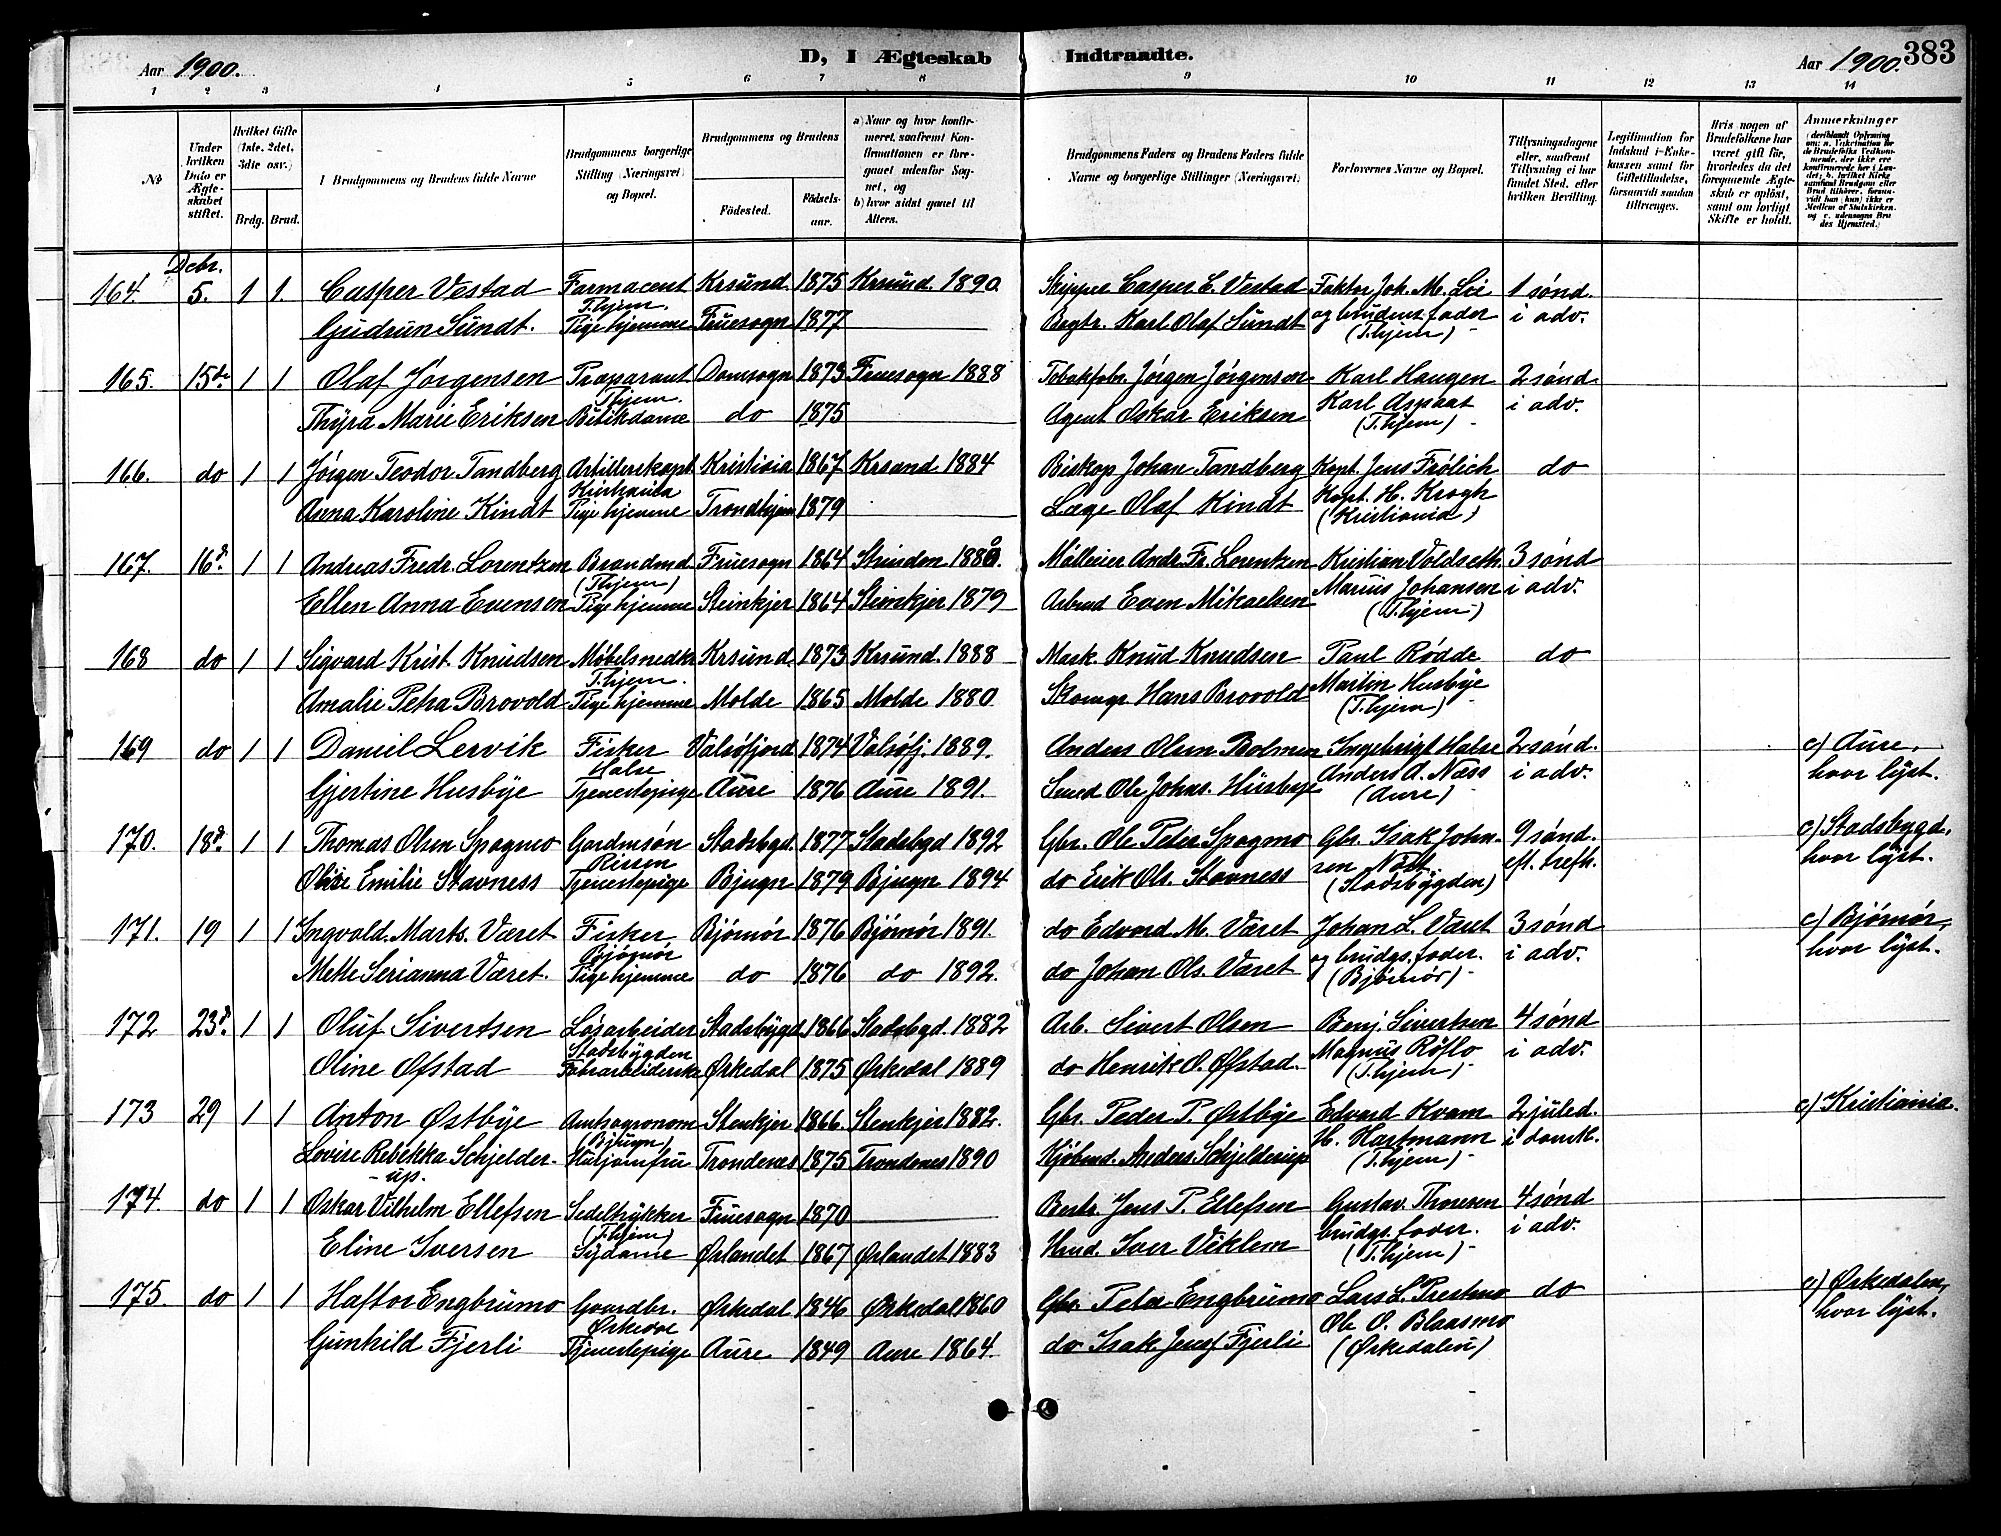 Aar 1900. D, I Ægteskab Indtraadte. Aar 1900. 383
1 2 3 4 5 6 7 8 9 10 11 12 13 14
No
Under hvilken Dato er Ægteskabet stiftet.
Hvilket Gifte (1ste, 2det, 3die osv.)
Brdg. Brud.
Brudgommens og Brudens fulde Navne
Brudgommens borgerlige Stilling (Næringsvei) og Bopæl.
Brudgommens og Brudens
Födested. Födsels-aar.
a) Naar og hvor konfirmeret, saafremt Konfirmationen er foregaaet udenfor Sognet, og
b) hvor sidst gaaet til Alters.
Brudgommens Faders og Brudens Faders fulde Navne og borgerlige Stillinger (Næringsvei.)
Forlovernes Navne og Bopæl.
Tillysningsdagene eller, saafremt Tillysning ei har fundet Sted, efter hvilken Bevilling.
Legitimation for Indskud i Enkekassen samt for Giftetilladelse, forsaavidt saadan tiltrænges.
Hvis nogen af Brudefolkene har været gift før, hvorledes da det foregaaende Ægteskab er opløst, samt om lovligt Skifte er holdt.
Anmærkninger
Debr.
164. 5. 1 1. Casper Vestad Farmaceut Krsund. 1875 Krsund. 1890. Skipper Casper E. Vestad Faktor Joh. M. Lie 1 sønd.
T.hjem.
Gudrun Sundt. Pige hjemme Fruesogn 1877 Bogtr. Karl Olaf Sundt og brudens fader i adv.
(T.hjem)
165. 15de 1 1 Olaf Jørgensen Præparant Domsogn 1873 Fruesogn 1888 Tobakfabr. Jørgen Jørgensen Karl Haugen 2 sønd.
T.hjem.
Thyra Marie Eriksen Butikdame do 1875 Agent Oskar Eriksen Karl Aspaas i adv.
(T.hjem)
166. do 1 1 Jørgen Teodor Tandberg Artillerikapt. Kristiania 1867 Krsand 1884 Biskop Johan Tandberg Kapt. Jens Frølich do
Kristiania
Anna Karoline Kindt Pige hjemme Trondhjem 1879 Læge Olaf Kindt Kapt. H. Krogh
(Kristiania)
167. 16d 1 1 Andreas Fredr. Lorentzen Brandmd Fruesogn 1864 Strinden Mølleeier Andr. Fr. Lorentzen Kristian Voldseth 3 sønd
(T.hjem)
Ellen Anna Evensen Pige hjemme Steinkjer 1864 Steinkjer 1879 Arbmd Even Mikaelsen Marius Johansen i adv.
(T.hjem)
168 do 1 1 Sigvard Krist. Knudsen Møbelsnedkr Krsund. 1873 Krsund. 1888 Mask. Knud Knudsen Paul Rødde do
T.hjem.
Amalie Petra Brovold Pige hjemme Molde 1865 Molde 1880 Skomgr. Hans Brovold Martin Husbye
(T.hjem)
169 do 1 1 Daniel Lervik Fisker Valsøfjord 1874 Valsøfj. 1889. Anders Olsen Bolmen Ingebrigt Halse 2 sønd. c) Aure,
Halse
Gjertine Husbye Tjenestepige Aure 1876 Aure 1891. Smed Ole Johns. Husbye Anders A. Næss i adv. hvor lyst.
(Aure)
170. 18d. 1 1 Thomas Olsen Spagmo Gardmsøn Stadsbgd. 1877 Stadsbgd 1892 Gbr. Ole Peter Spagmo Gbr. Isak Johan- 9 sønd. c) Stadsbygd,
Rissen
Emilie Stavness Tjenestepige Bjugn 1879 Bjugn 1894 do Erik Ols. Stavness sen eft. trefh. hvor lyst.
(Stadsbygden)
171. 19 1 1 Ingvald. Marts. Været Fisker Bjørnør 1876 Bjørnør 1891. do Edvard M. Været Johan L. Været 3 sønd c) Bjørnør,
Bjørnør
Mette Serianna Været. Pige hjemme do 1876 do 1892. do Johan Ols. Været og brudgs. fader. i adv. hvor lyst.
(Bjørnør)
172 23d. 1 1 Oluf Sivertsen Løsarbeider Stadsbygd 1866 Stadsbgd. 1882 Arb. Sivert Olsen Benj. Sivertsen 4 sønd
Stadsbygden
Oline Øfstad Fabrarbeiderske Ørkedal 1875 Ørkedal 1889 do Henrik O. Øfstad. Magnus Røflo i adv.
(T.hjem)
173 29 1 1 Anton Østbye Amtsagronom Stenkjer 1866 Stenkjer 1882. Gbr. Peder P. Østbye Edvard Kvam 2 juled. c) Kristiania.
(Bjugn)
Lovise Rebekka Schjelder- Husjomfru Trondenes 1875 Trondenes 1890 Kjøbmd. Anders Schjelderup H. Hartmann i domk.
-up. (T.hjem)
174. do 1 1 Oskar Vilhelm Ellefsen Sedeltrykker Fruesogn 1870 Bestr Jens P. Ellefsen Gustav Thoresen 4 sønd
(T.hjem)
Eline Iversen Sydame Ørlandet 1867 Ørlandet 1883 Hmd. Iver Viklem brudgs. fader. i adv.
(T.hjem)
175. do 1 1 Haftor Engbrumo Gaardbr. Ørkedal 1846 Ørkedal 1860 Gbr. Peter Engbrumo Lars L. Prestmo do c) Ørkedalen,
Gunhild Fjerli Tjenestepige Aure 1849 Aure 1864. do Isak Josef Fjerli Ole O. Blaasmo hvor lyst.
(Ørkedalen)